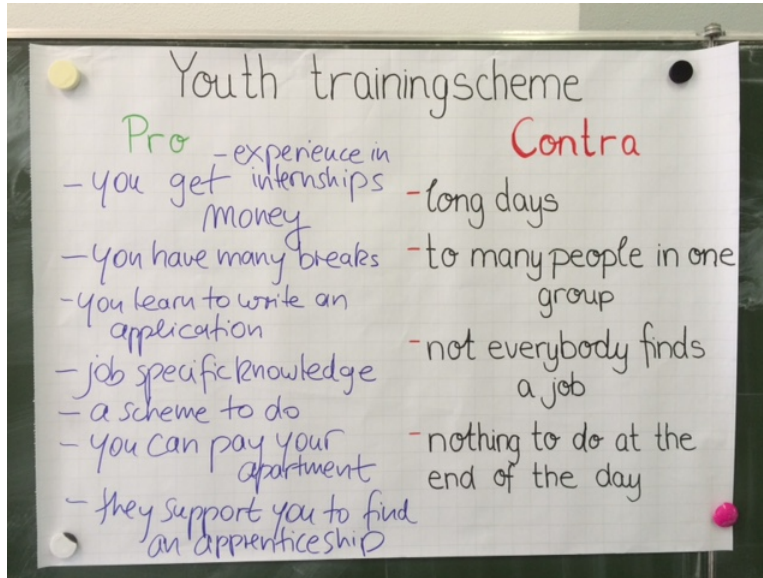 Youth trainingscheme
Pro
- experience in
internships
- you get
money
- you have many breaks
- you learn to write an
application
- job specific knowledge
- a scheme to do
- you can pay your
apartment
- they support you to find
an apprenticeship
Contra
- long days
- to many people in one
group
- not everybody finds
a job
- nothing to do at the
end of the day